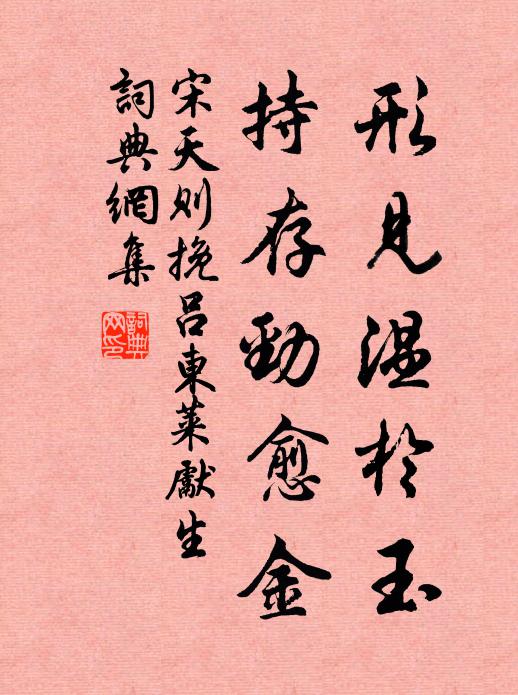 形見溫於玉
持存勁愈金
宋天則挽呂東萊獻生
詞典網集
詞典
网印